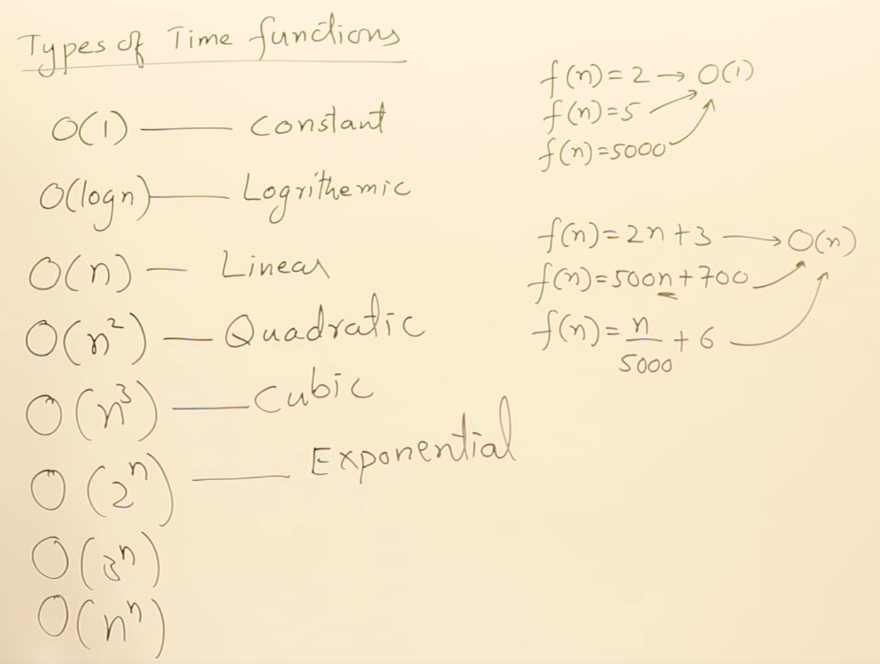 Types of Time functions
O(1) — Constant
O(logn) — Logrithemic
O(n) — Linear
O(n²) — Quadratic
O(n³) — Cubic
O(2ⁿ) — Exponential
O(3ⁿ)
O(nⁿ)
f(n)=2 → O(1)
f(n)=5
f(n)=5000
f(n)=2n+3 → O(n)
f(n)=500n+700
f(n)=n/5000+6